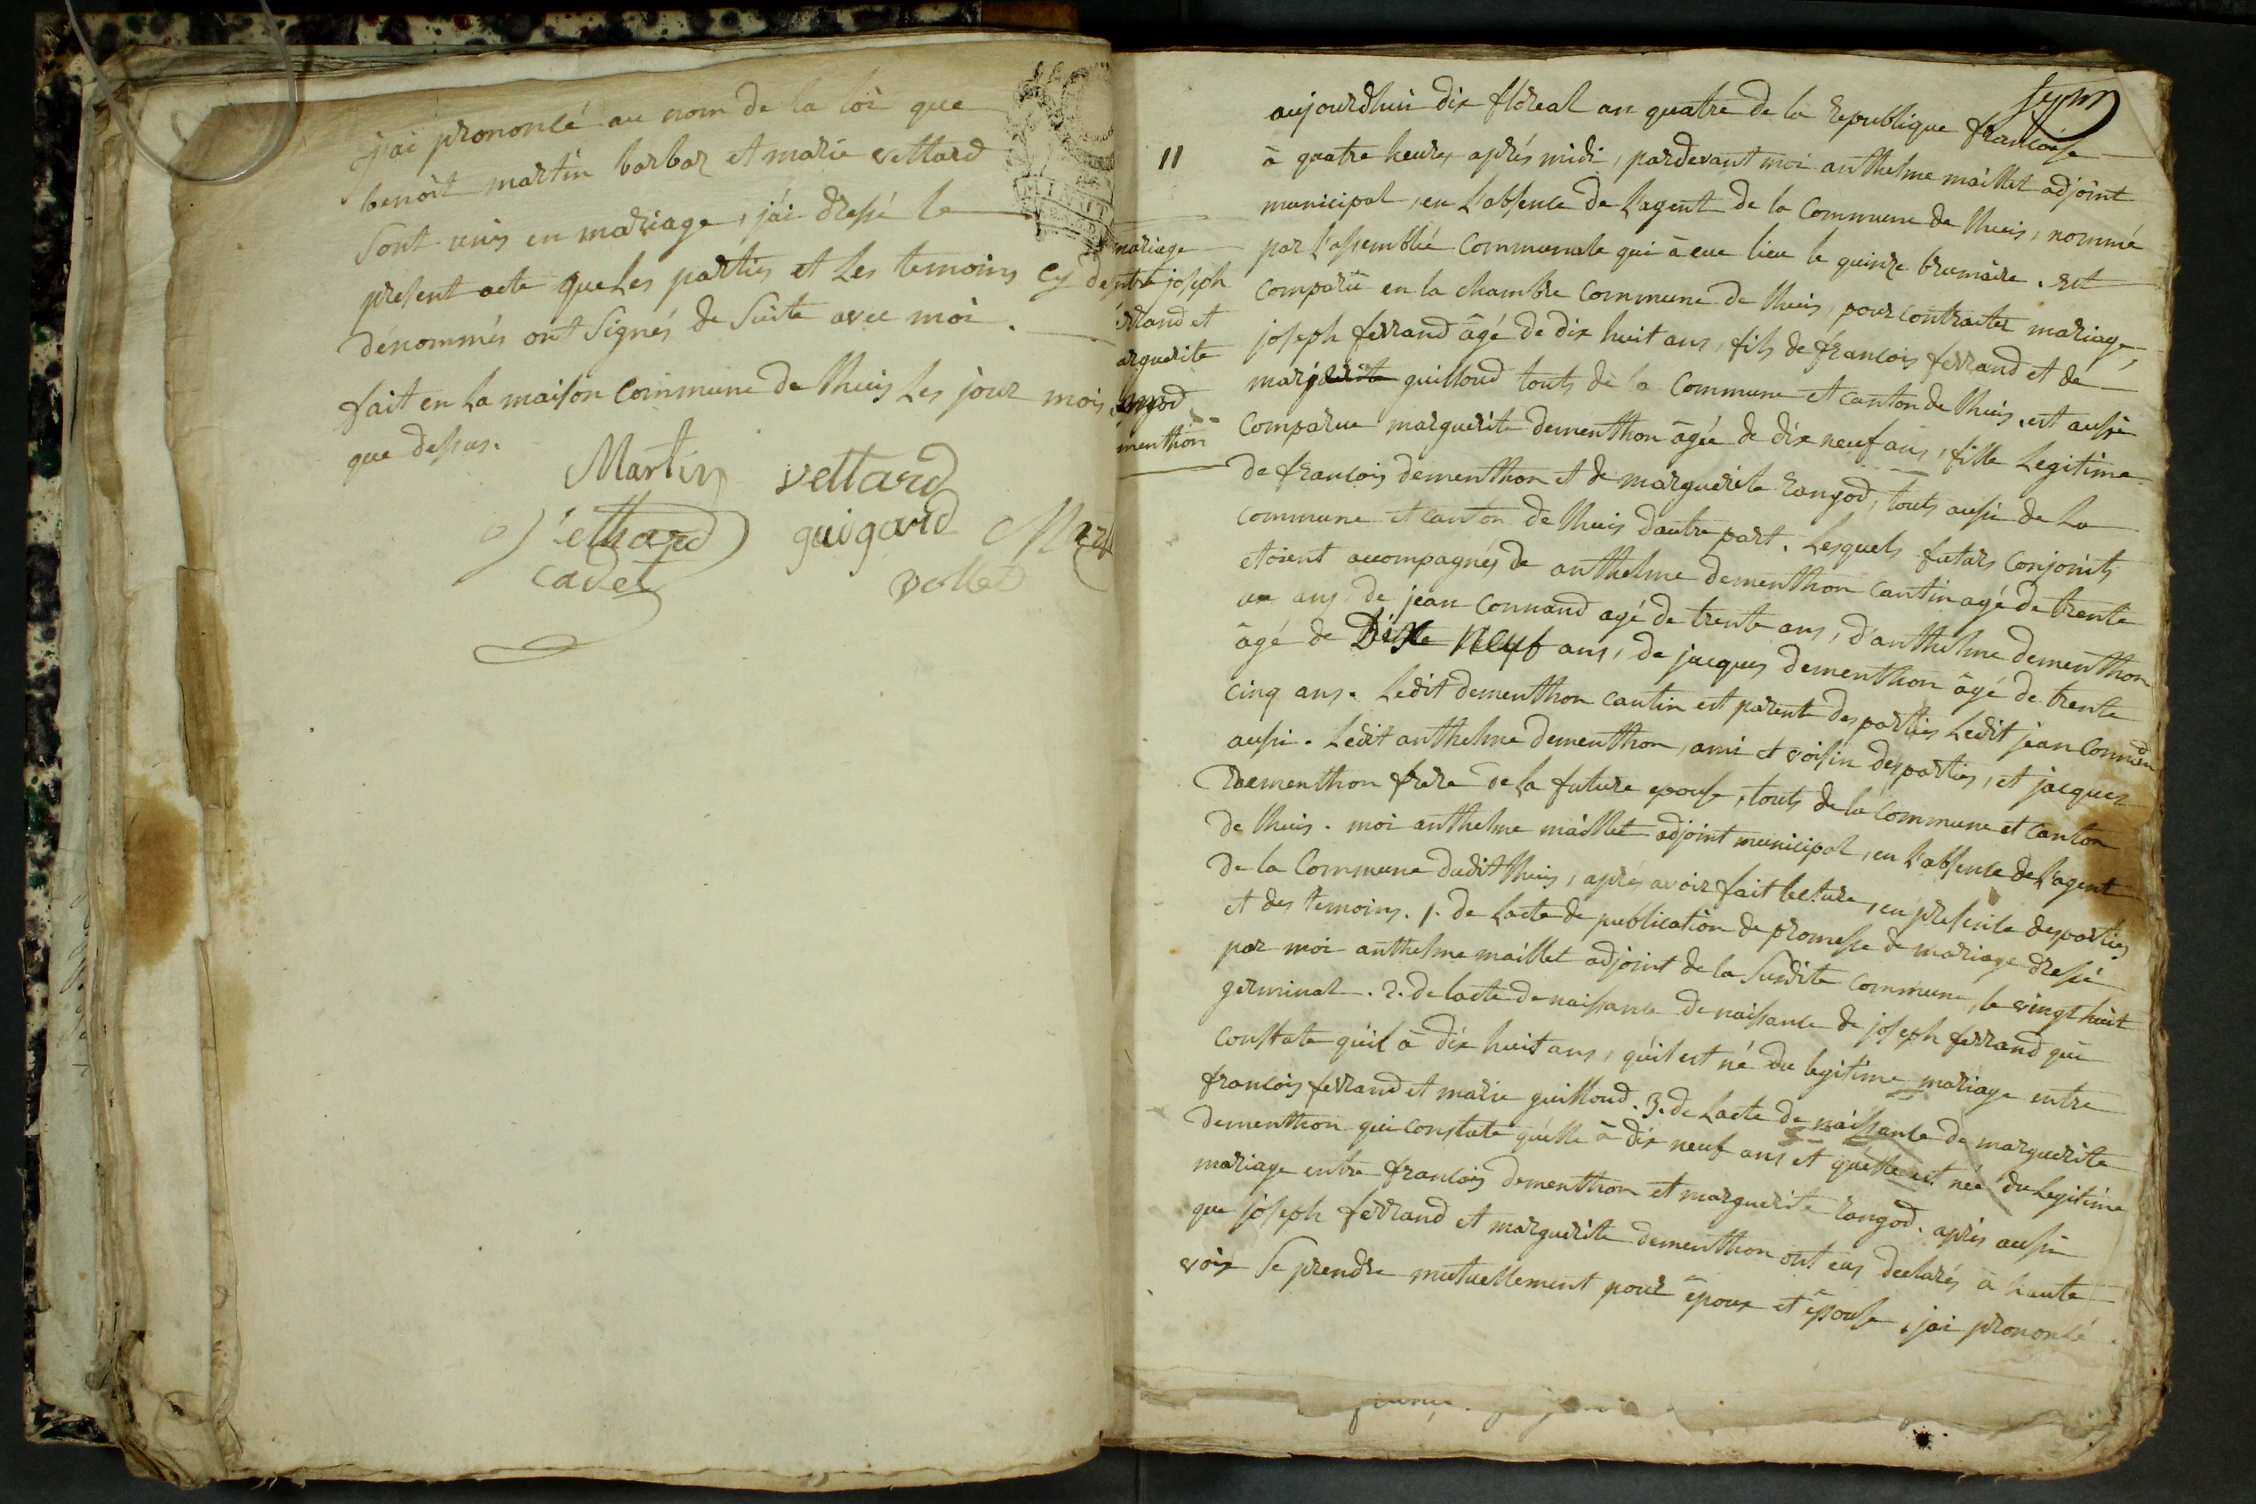 j'ai prononcé au nom de la loi que
benoit martin barbar et marie vettard
sont unis en mariage, j'ai dressé le
present acte que Les parties et Les temoins cy de
dénommés ont signés de suite avec moi.
fait en La maison Commune de thuis Les jour mois
que dessus.
Martin vettard
vethard guigard Mar
cadet vollet
11
mariage
entre joseph
errand et
arguerite
menthon
aujourdhui dix floreal an quatre de la Republique francoise
à quatre heures aprés midi, pardevant moi anthelme maillet adjoint
municipal, en L'absence de L'agent de la Commune de thuis, nommé
par l'assemblée Communale qui à eue lieu le quinze brumaire. est
comparü en la chambre Commune de thuis, pour contracter mariage,
joseph ferrand âgé de dix huit ans, fils de francois ferrand et de
guilloud touts de la Commune et canton de thuis. est aussi
Comparue marguerite dementhon âgée de dix neuf ans, fille Legitime
de francois dementhon et de marguerite rongod, touts aussi de La
commune et canton de thuis dautre part. Lesquels futurs conjoints
etoient accompagnés de anthelme dementhon cantin agé de trente
un ans, de jean connand agé de trente ans, d'anthelme dementhon
âgé de Dixe Neuf ans, de jacques dementhon âgé de trente
cinq ans. Ledit dementhon cantin est parent des parties Ledit jean Connand
aussi. Ledit anthelme dementhon, ami et voisin des parties, et jacques
dementhon frere de La future epouse, touts de la Commune et Canton
de thuis. moi anthelme maillet adjoint municipal, en L'absence de L'agent
de la Commune dudit thuis, après avoir fait lecture, en presence des parties
et des temoins. 1. de Lacte de publication de promesse de mariage dressé
par moi anthelme maillet adjoint de la susdite Commune, le vingt huit
germinal. 2. de lacte de naissance de naissance de joseph ferrand qui
constate quil à dix huit ans, quil est né du legitime mariage entre
francois ferrand et marie guilloud. 3. de Lacte de naissance de marguerite
dementhon qui constate quelle à dix neuf ans et quelle est née du Legitime
mariage entre francois dementhon et marguerite rongod. après aussi
que joseph ferrand et marguerite dementhon ont eus declarés à haute
voix se prendre mutuellement pour époux et épouse, jai prononcé.